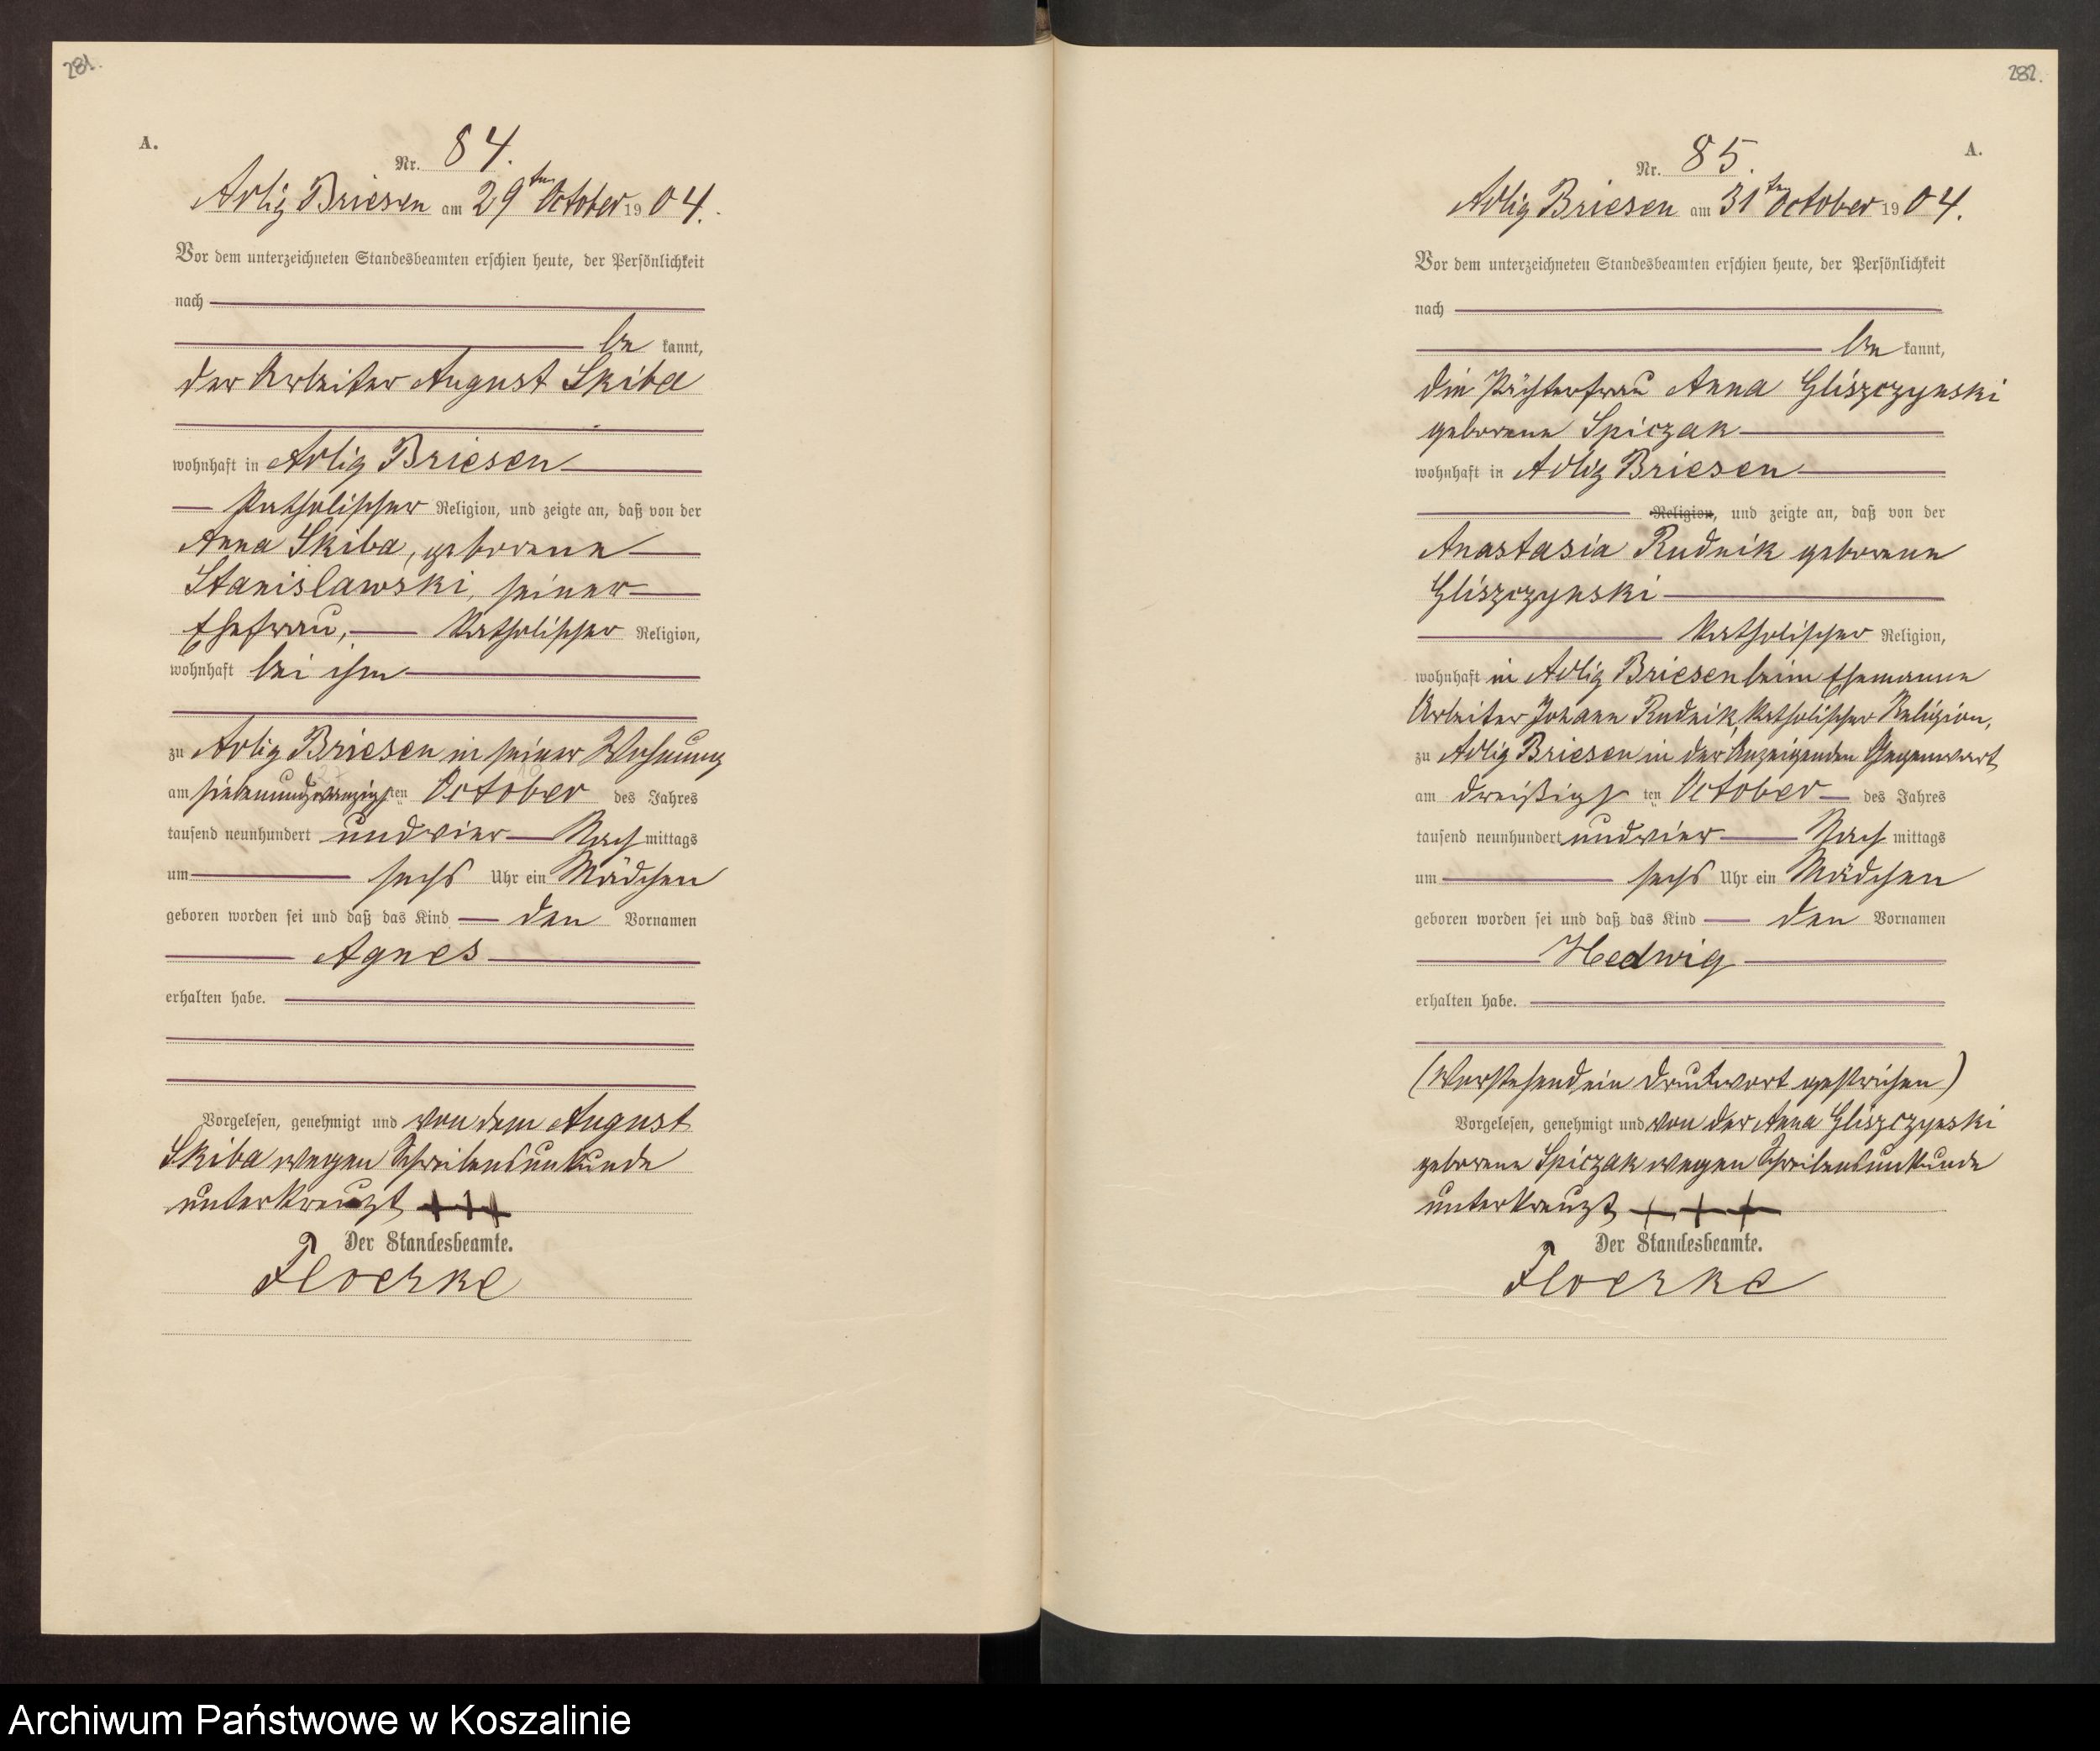 281.
A.
Nr. 84.
Adlig Briesen am 29ten October 1904.
Vor dem unterzeichneten Standesbeamten erschien heute, der Persönlichkeit
nach
be kannt,
der Arbeiter August Skiba
wohnhaft in Adlig Briesen
katholischer Religion, und zeigte an, daß von der
Anna Skiba, geborene
Stanislawski, seiner
Ehefrau, katholischer Religion,
wohnhaft bei ihm
zu Adlig Briesen in seiner Wohnung
am siebenundzwanzigsten October des Jahres
tausend neunhundert und vier Nach mittags
um sechs Uhr ein Mädchen
geboren worden sei und daß das Kind den Vornamen
Agnes
erhalten habe.
Vorgelesen, genehmigt und von dem August
Skiba wegen Schreibensunkunde
unterkreuzt +++
Der Standesbeamte.
Floerke
282.
A.
Nr. 85.
Adlig Briesen am 31ten October 1904.
Vor dem unterzeichneten Standesbeamten erschien heute, der Persönlichkeit
nach
be kannt,
die Pächterfrau Anna Gliszczynski
geborene Spiczak
wohnhaft in Adlig Briesen
Religion, und zeigte an, daß von der
Anastasia Rudnik geborene
Gliszczynski
katholischer Religion,
wohnhaft in Adlig Briesen beim Ehemanne
Arbeiter Johann Rudnik, katholischer Religion,
zu Adlig Briesen in der Anzeigenden Gegenwart
am dreißigsten October des Jahres
tausend neunhundert und vier Nach mittags
um sechs Uhr ein Mädchen
geboren worden sei und daß das Kind den Vornamen
Hedwig
erhalten habe.
(Vorstehend ein Druckwort gestrichen)
Vorgelesen, genehmigt und von der Anna Gliszczynski
geborene Spiczak wegen Schreibensunkunde
unterkreuzt +++
Der Standesbeamte.
Floerke
Archiwum Państwowe w Koszalinie